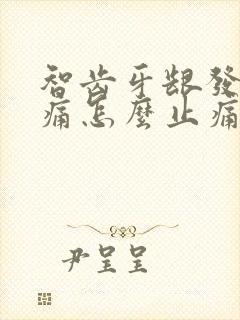 智齿牙龈發
痛怎麼止痛
尹呈呈